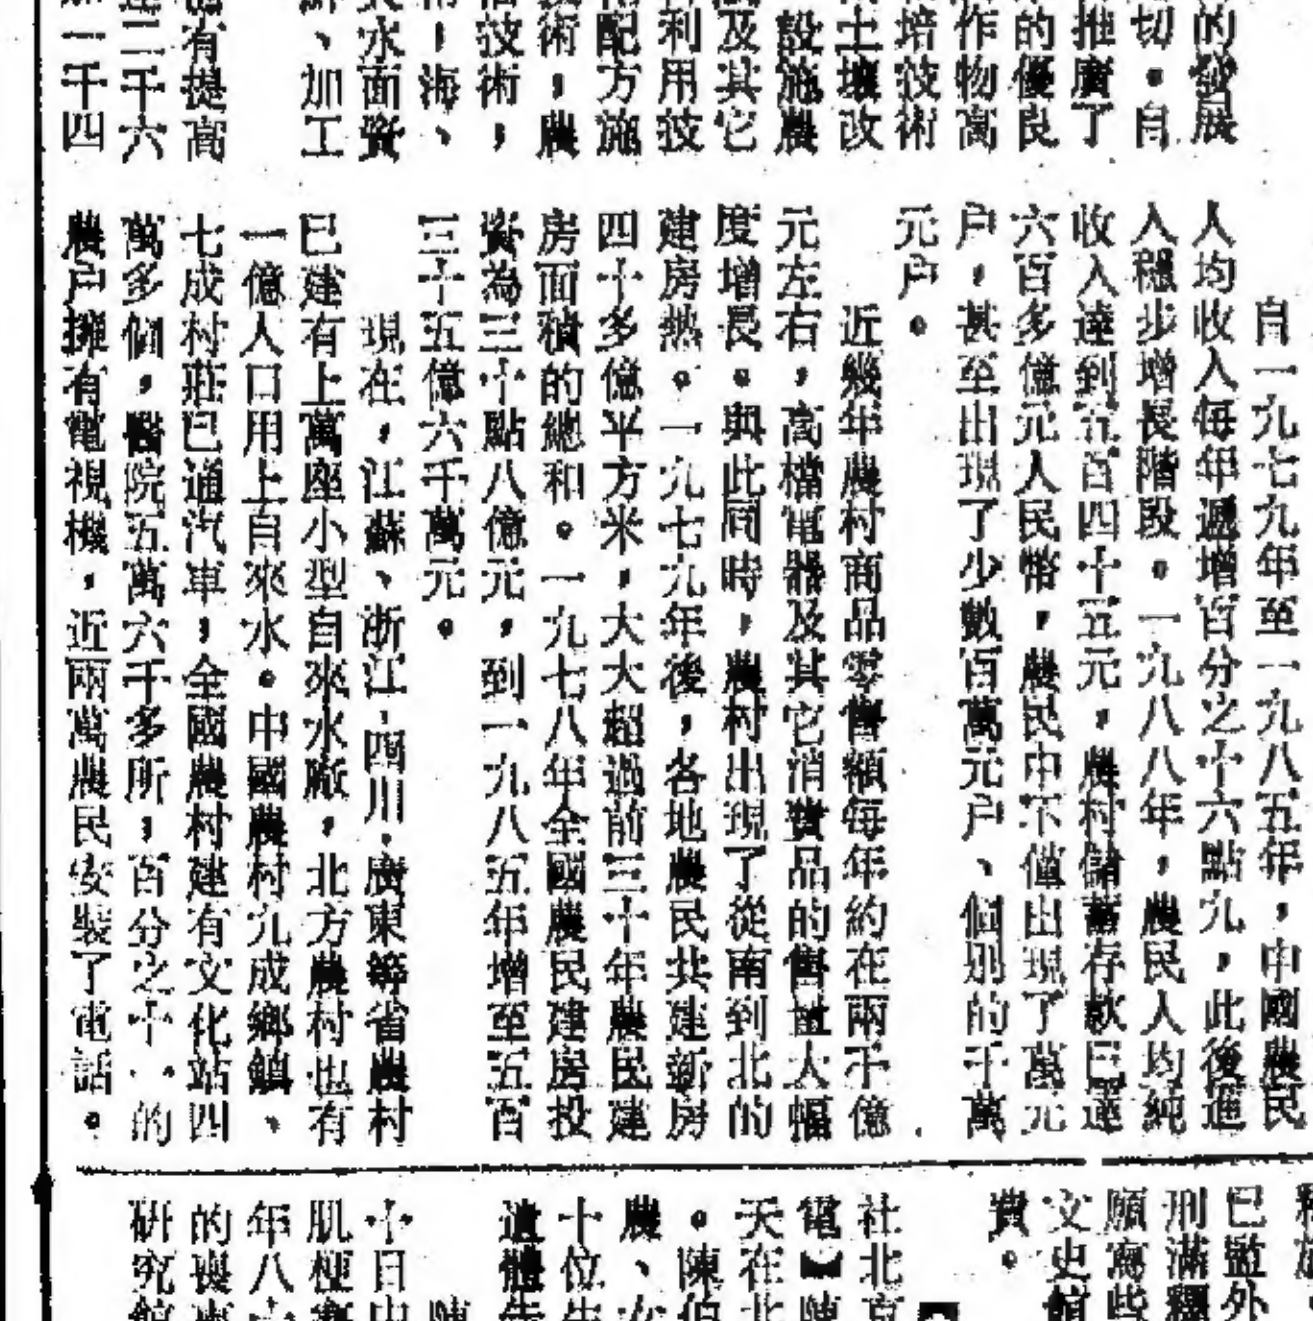 的發展
切。自
推廣了
的優良
作物高
培技術
土壤改
設施農
及其它
利用技
配方施
術，農
技術，
，海、
水面資
、加工
有提高
二千六
一千四
自一九七九年至一九八五年，中國農民
人均收入每年遞增百分之十六點九，此後進
入穩步增長階段。一九八八年，農民人均純
收入達到五百四十五元，農村儲蓄存款已達
六百多億元人民幣，農民中不僅出現了萬元
户，甚至出現了少數百萬元户、個別的千萬
元户。
近幾年農村商品零售額每年約在兩千億
元左右，高檔電器及其它消費品的售量大幅
度增長。與此同時，農村出現了從南到北的
建房熱。一九七九年後，各地農民共建新房
四十多億平方米，大大超過前三十年農民建
房面積的總和。一九七八年全國農民建房投
資為三十點八億元，到一九八五年增至五百
三十五億六千萬元。
現在，江蘇、浙江、四川、廣東等省農村
已建有上萬座小型自來水廠，北方農村也有
一億人口用上自來水。中國農村九成鄉鎮、
七成村莊已通汽車，全國農村建有文化站四
萬多個，醫院五萬六千多所，百分之十一的
農户擁有電視機，近兩萬農民安裝了電話。
已監外
刑滿釋
願寫些
文史館
費。
社北京
電】陳
天在北
。陳伯
農、女
十位生
遺體告
陳
十日中
肌梗塞
年八十
的喪事
研究館